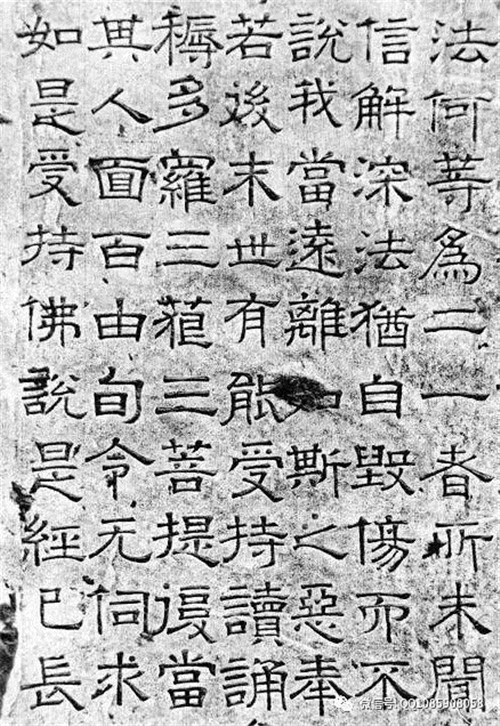 法何等為二一者所未聞
信解深法猶自毀傷而不
說我當遠離如斯之惡奉
若後末世有能受持讀誦
耨多羅三藐三菩提復當
其人面百由旬令无伺求
如是受持佛說是經已長
微信号: